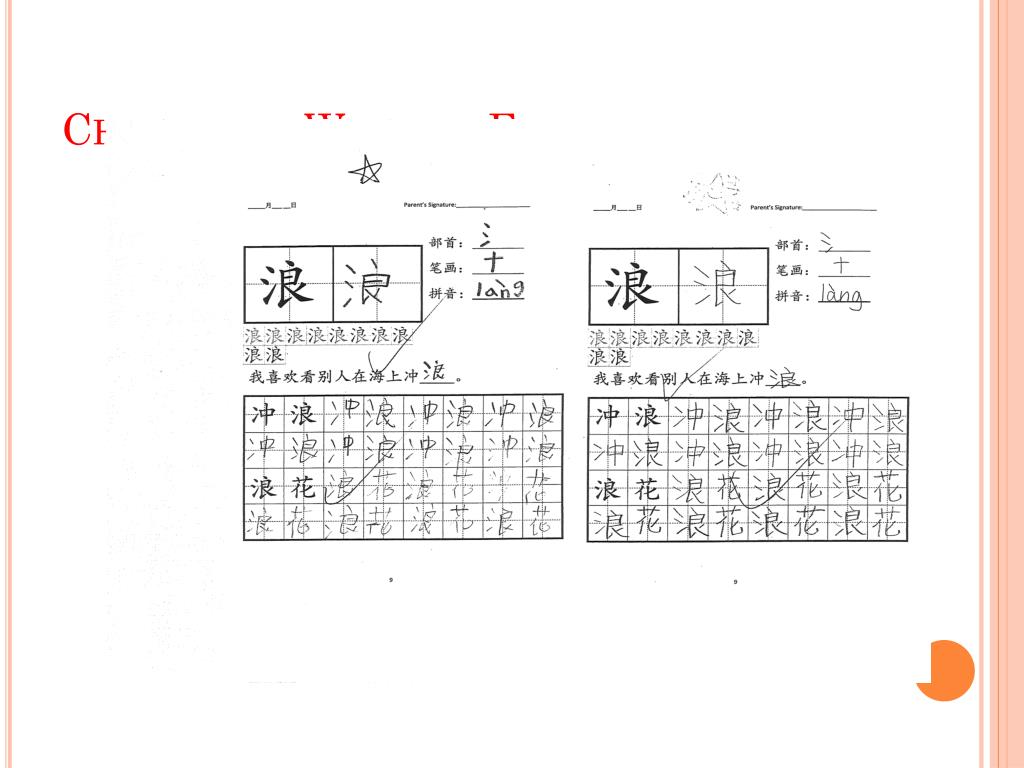 ____月____日 Parent's Signature:____________________
部首：氵
笔画：十
拼音：làng
浪 浪
浪浪浪浪浪浪浪浪
浪浪
我喜欢看别人在海上冲浪。
冲浪冲浪冲浪冲浪
冲浪冲浪冲浪冲浪
浪花浪花浪花浪花
浪花浪花浪花浪花
9
____月____日 Parent's Signature:____________________
部首：氵
笔画：十
拼音：làng
浪 浪
浪浪浪浪浪浪浪浪
浪浪
我喜欢看别人在海上冲浪。
冲浪冲浪冲浪冲浪
冲浪冲浪冲浪冲浪
浪花浪花浪花浪花
浪花浪花浪花浪花
9